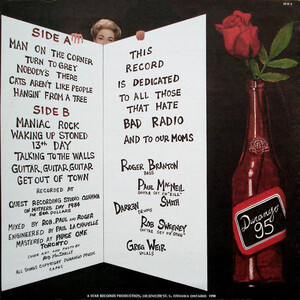 SIDE A
MAN ON THE CORNER
TURN TO GREY
NOBODY'S THERE
CATS AREN'T LIKE PEOPLE
HANGIN' FROM A TREE
SIDE B
MANIAC ROCK
WAKING UP STONED
13th DAY
TALKING TO THE WALLS
GUITAR, GUITAR, GUITAR
GET OUT OF TOWN
RECORDED AT
QUEST RECORDING STUDIO OSHAWA
ON MOTHERS DAY 1986
FOR 600 DOLLARS
MIXED BY ROB, PAUL AND ROGER
ENGINEERED BY PAUL LACHAPELLE
MASTERED AT PHASE ONE
TORONTO
COVER ART AND PHOTO BY
ALL SONGS COPYRIGHT DURANGO MUSIC
THIS
RECORD
IS DEDICATED
TO ALL THOSE
THAT HATE
BAD RADIO
AND TO OUR MOMS
ROGER BRANTON
BASS
PAUL McNEIL
DARREN SMITH
DRUMS
ROB SWEENEY
GREG WEIR
VOCALS
Durango
95
A STAR RECORDS PRODUCTION, OSHAWA ONTARIO